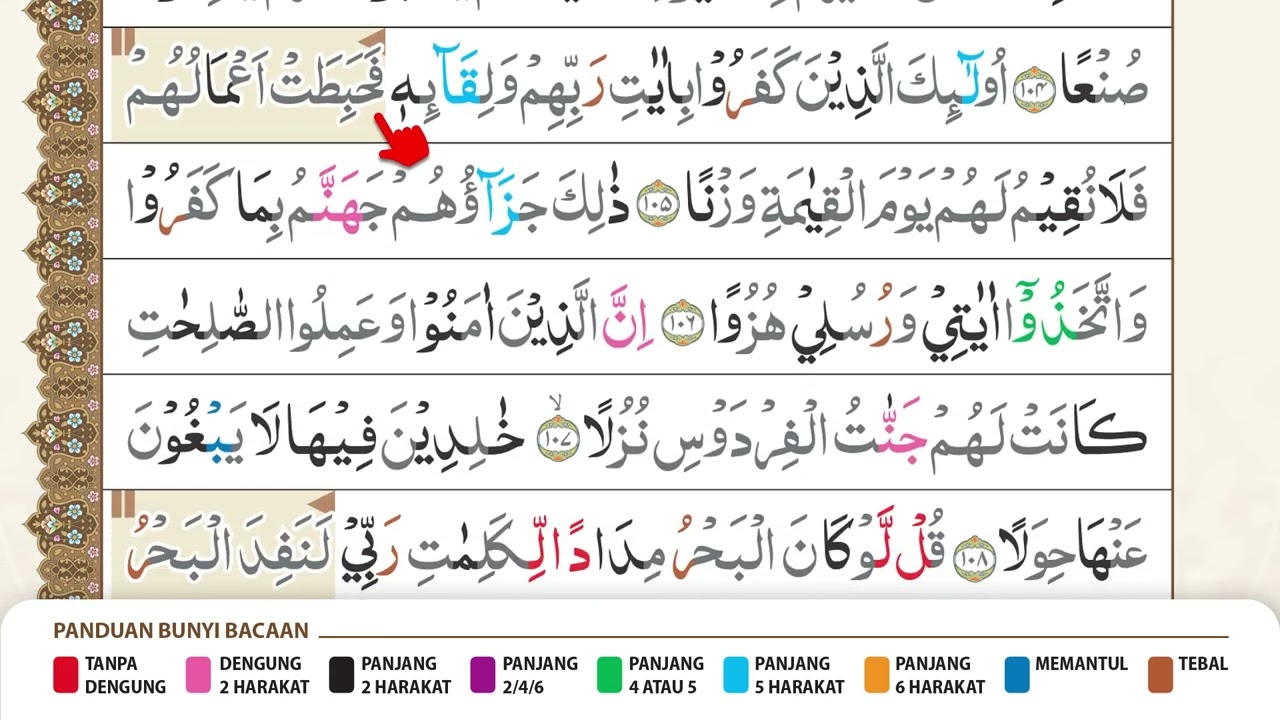 صُنْعًا ١٠٤ اُولٰۤىِٕكَ الَّذِيْنَ كَفَرُوْا بِاٰيٰتِ رَبِّهِمْ وَلِقَاۤىِٕهٖ فَحَبِطَتْ اَعْمَالُهُمْ
فَلَا نُقِيْمُ لَهُمْ يَوْمَ الْقِيٰمَةِ وَزْنًا ١٠٥ ذٰلِكَ جَزَاۤؤُهُمْ جَهَنَّمُ بِمَا كَفَرُوْا
وَاتَّخَذُوْٓا اٰيٰتِيْ وَرُسُلِيْ هُزُوًا ١٠٦ اِنَّ الَّذِيْنَ اٰمَنُوْا وَعَمِلُوا الصّٰلِحٰتِ
كَانَتْ لَهُمْ جَنّٰتُ الْفِرْدَوْسِ نُزُلًا ۙ ١٠٧ خٰلِدِيْنَ فِيْهَا لَا يَبْغُوْنَ
عَنْهَا حِوَلًا ١٠٨ قُلْ لَّوْ كَانَ الْبَحْرُ مِدَادًا لِّكَلِمٰتِ رَبِّيْ لَنَفِدَ الْبَحْرُ
PANDUAN BUNYI BACAAN
TANPA DENGUNG
DENGUNG 2 HARAKAT
PANJANG 2 HARAKAT
PANJANG 2/4/6
PANJANG 4 ATAU 5
PANJANG 5 HARAKAT
PANJANG 6 HARAKAT
MEMANTUL
TEBAL